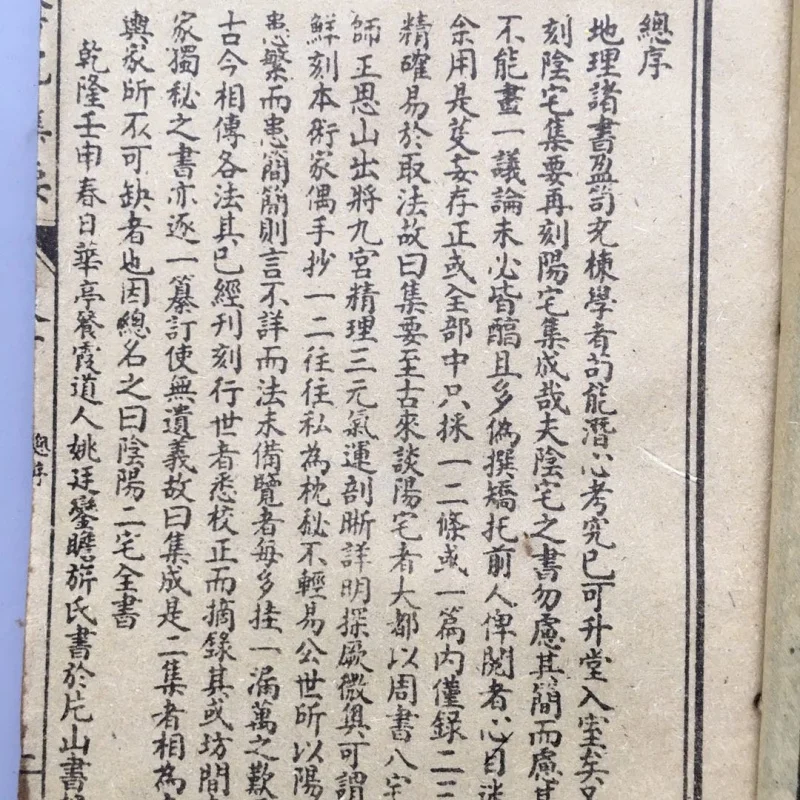 總序
地理諸書盈笥充棟學者苟能潛心考究已可升堂入室矣又
刻陰宅集要再刻陽宅集成哉夫陰宅之書勿慮其簡而慮其
不能畫一議論未必皆醕且多偽撰矯托前人俾閱者心目迷
余用是芟妄存正或全部中只採一二條或一篇內僅錄二三
精確易於取法故曰集要至古來談陽宅者大都以周書八宅
師王思山出將九宮精理三元氣運剖晰詳明探厥微奧可謂
鮮刻本術家偶手抄一二往往私為枕秘不輕易公世所以陽
患繁而患簡簡則言不詳而法未備覽者每多挂一漏萬之歎
古今相傳各法其已經刊刻行世者悉校正而摘錄其或坊間
家獨秘之書亦逐一纂訂使無遺義故曰集成是二集者相為
輿家所不可缺者也因總名之曰陰陽二宅全書
乾隆壬申春日華亭餐霞道人姚廷鑾瞻旂氏書於片山書
總序